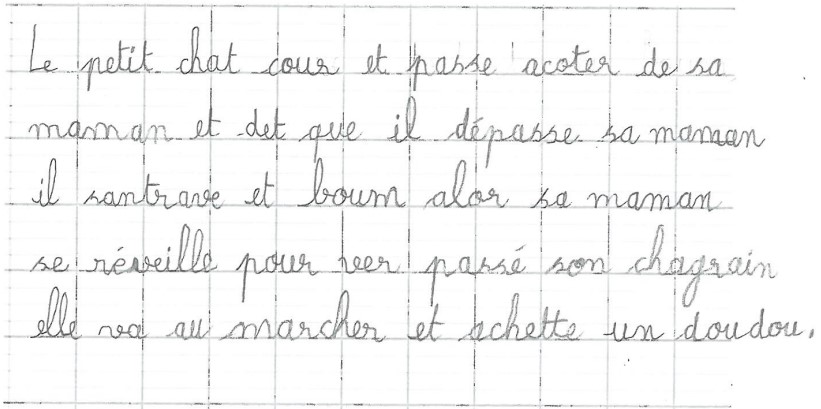 Le petit chat cour et passe acoter de sa
maman et det que il dépasse sa maman
il santrave et boum alor sa maman
se réveille pour passé son chagrain
elle va au marcher et achette un doudou.